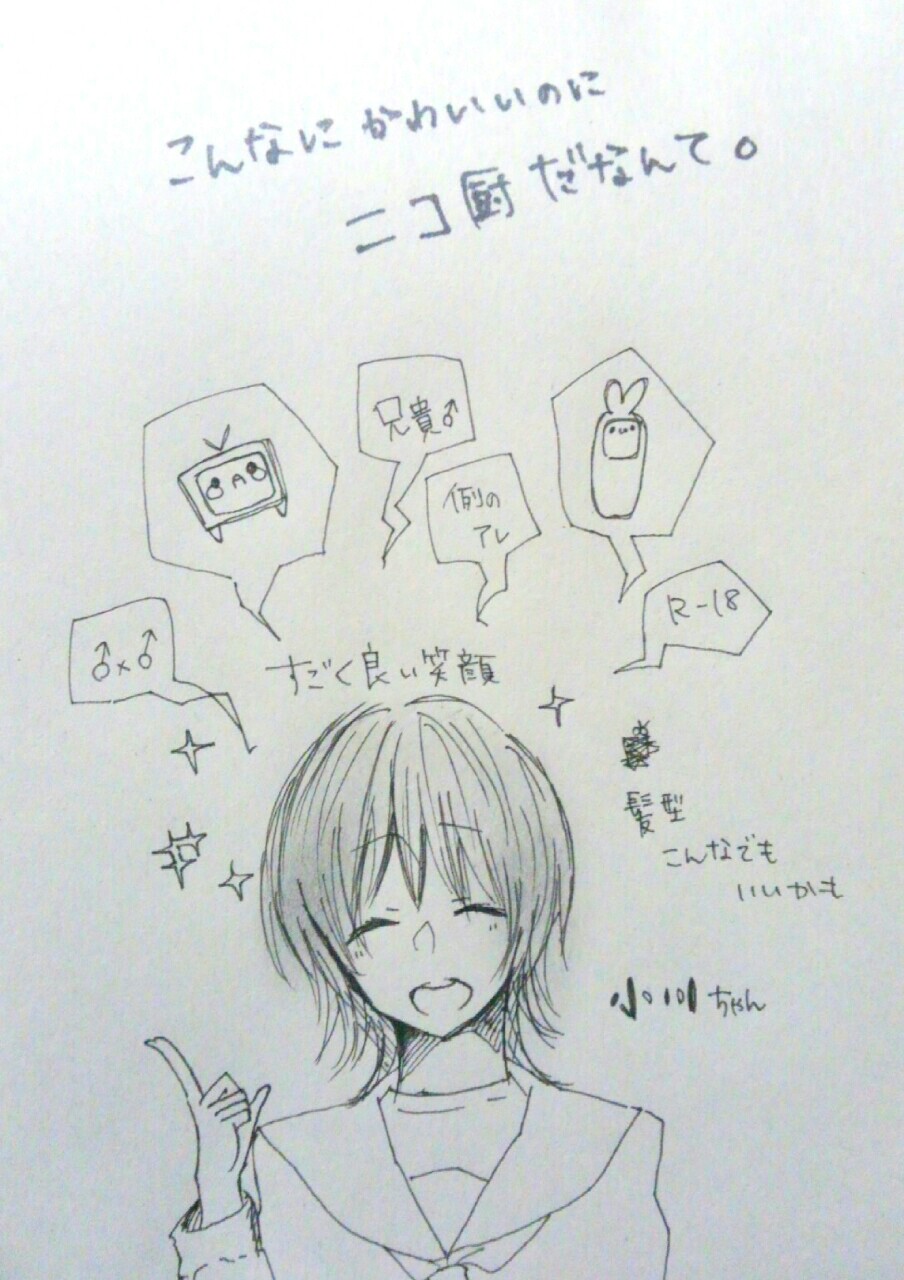 こんなにかわいいのに
ニコ厨だなんて。
兄貴♂
例の
アレ
R-18
♂×♂
すごく良い笑顔
髪型
こんなでも
いいかも
小川ちゃん